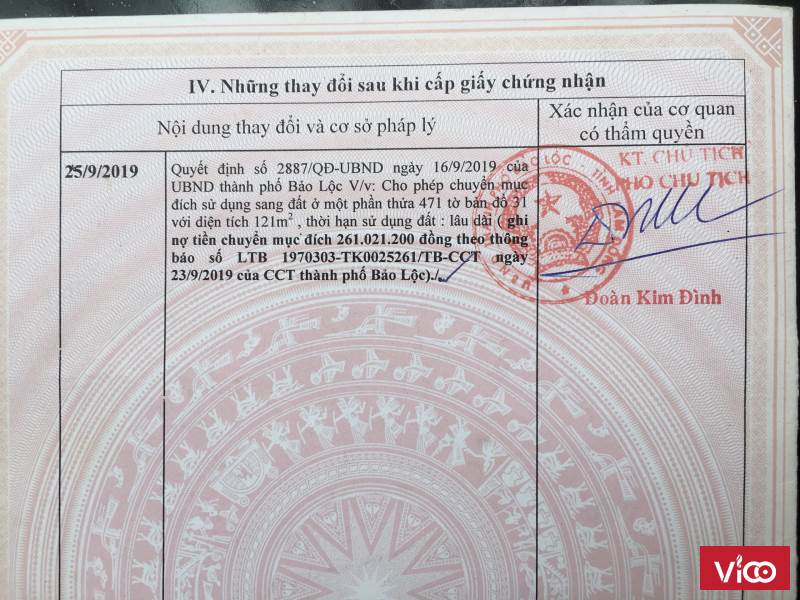 IV. Những thay đổi sau khi cấp giấy chứng nhận
Nội dung thay đổi và cơ sở pháp lý
Xác nhận của cơ quan
có thẩm quyền
25/9/2019
Quyết định số 2887/QĐ-UBND ngày 16/9/2019 của
UBND thành phố Bảo Lộc V/v: Cho phép chuyển mục
đích sử dụng sang đất ở một phần thửa 471 tờ bản đồ 31
với diện tích 121m², thời hạn sử dụng đất : lâu dài ( ghi
nợ tiền chuyển mục đích 261.021.200 đồng theo thông
báo số LTB 1970303-TK0025261/TB-CCT ngày
23/9/2019 của CCT thành phố Bảo Lộc)./.
KT. CHỦ TỊCH
PHÓ CHỦ TỊCH
Đoàn Kim Đình
ViCO